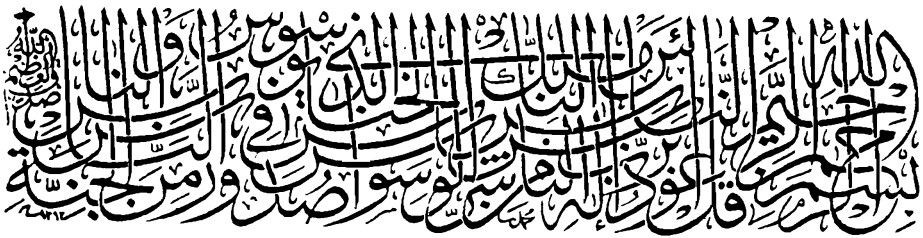 بسم الله الرحمن الرحيم قل أعوذ برب الناس ملك الناس إله الناس من شر الوسواس الخناس الذي يوسوس في صدور الناس من الجنة والناس صدق الله العظيم